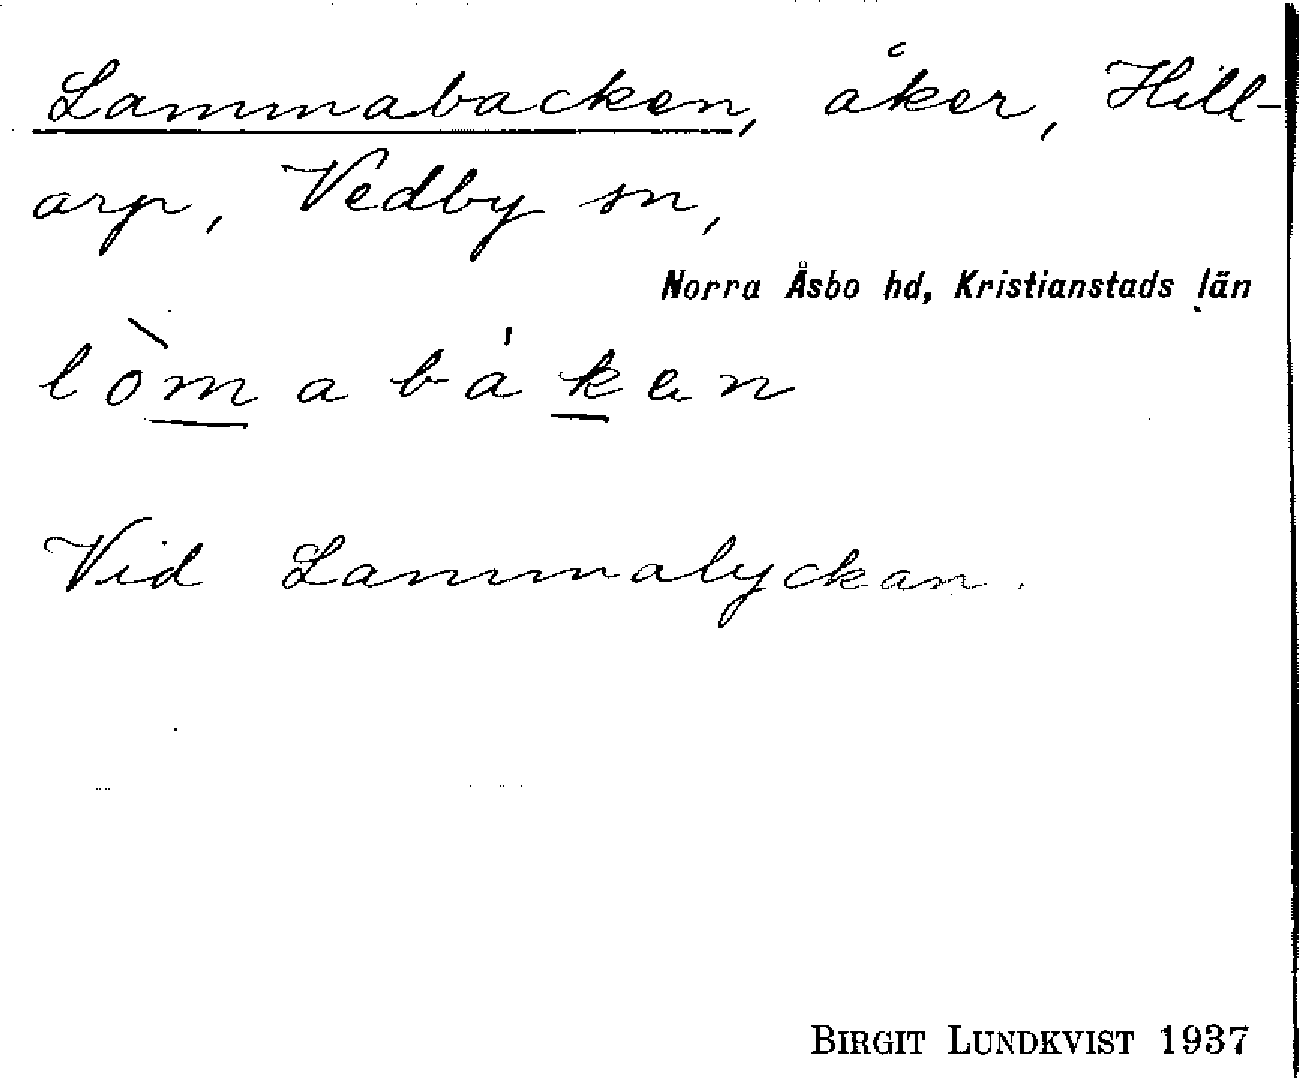 Lammabacken, åker, Hill-
arp, Vedby sn,
Norra Åsbo hd, Kristianstads län
lòmabáken
Vid Lammalyckan.
BIRGIT LUNDKVIST 1937